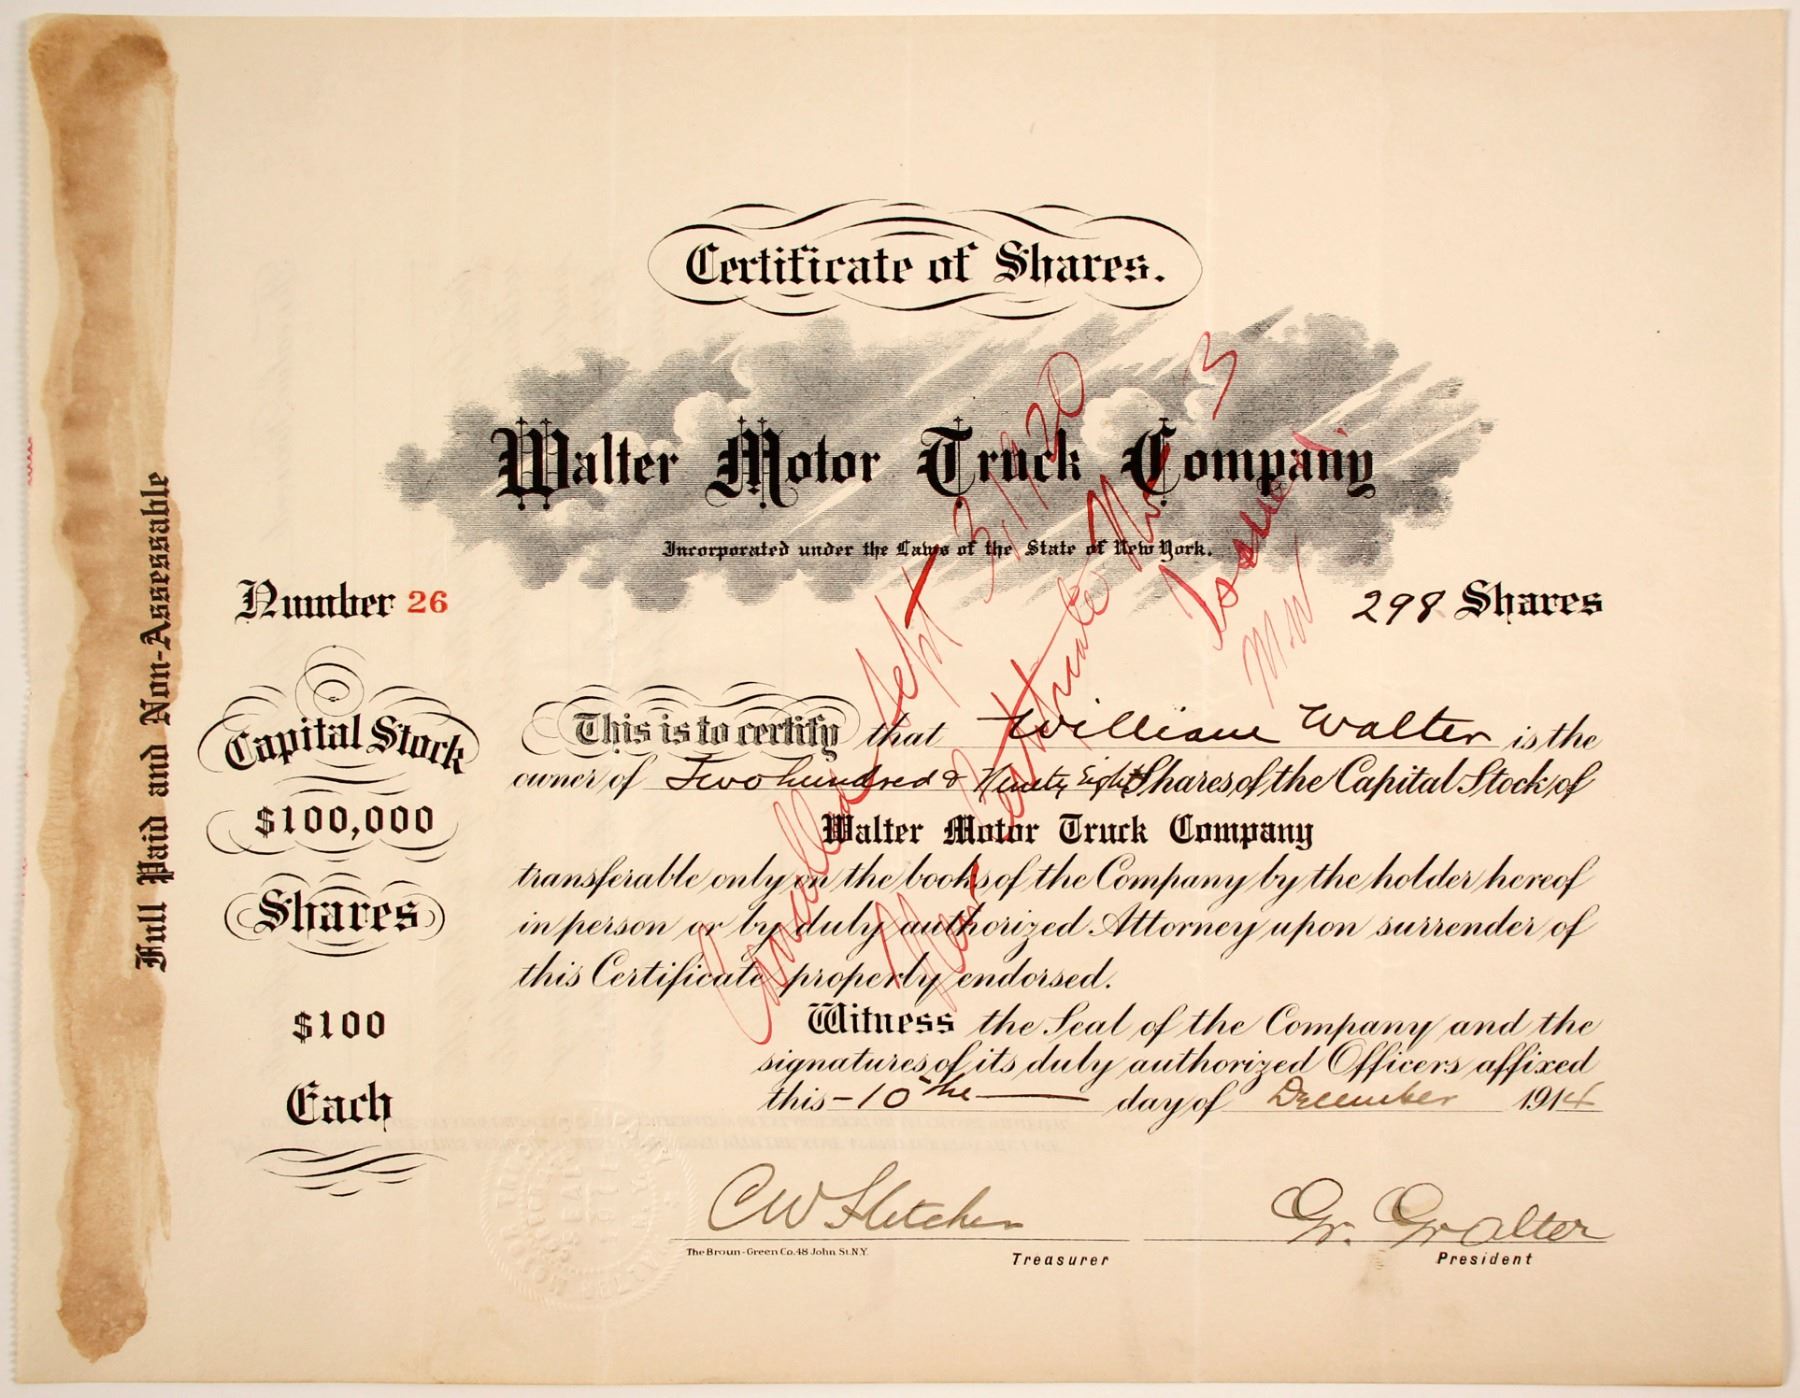 Certificate of Shares.
Walter Motor Truck Company
Incorporated under the Laws of the State of New York.
Number 26
298 Shares
Full Paid and Non-Assessable
Capital Stock
$100,000
Shares
$100
Each
This is to certify that William Walter is the
owner of Two hundred & Ninety Eight Shares of the Capital Stock of
Walter Motor Truck Company
transferable only on the books of the Company by the holder hereof
in person or by duly authorized Attorney upon surrender of
this Certificate properly endorsed.
Witness the Seal of the Company and the
signatures of its duly authorized Officers affixed
this - 10 the day of December 1914
CW Fletcher
W. Walter
The Broun-Green Co. 48 John St. N.Y.
Treasurer
President
Cancelled Sept 3, 1920
New Certificate No 3
Issued.
M.W